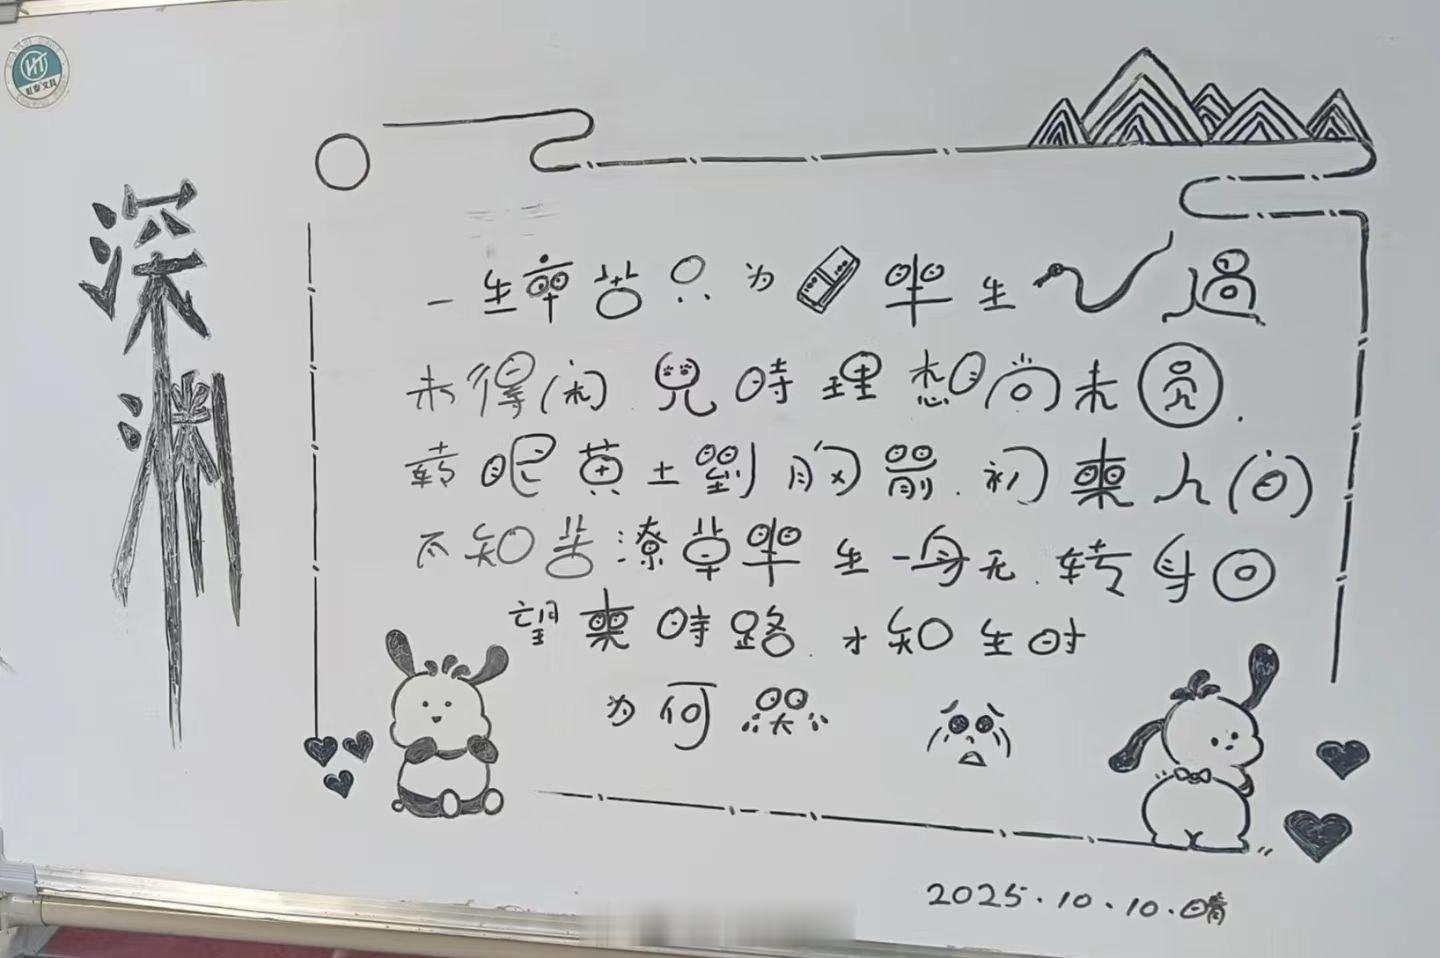 深渊
一生辛苦只为 半生 过
未得闲.兒時理想尚未圆.
转眼黄土到胸前.初來人间
不知苦潦草半生一身无.转身回
望來時路.才知生时
为何哭
2025.10.10.晴